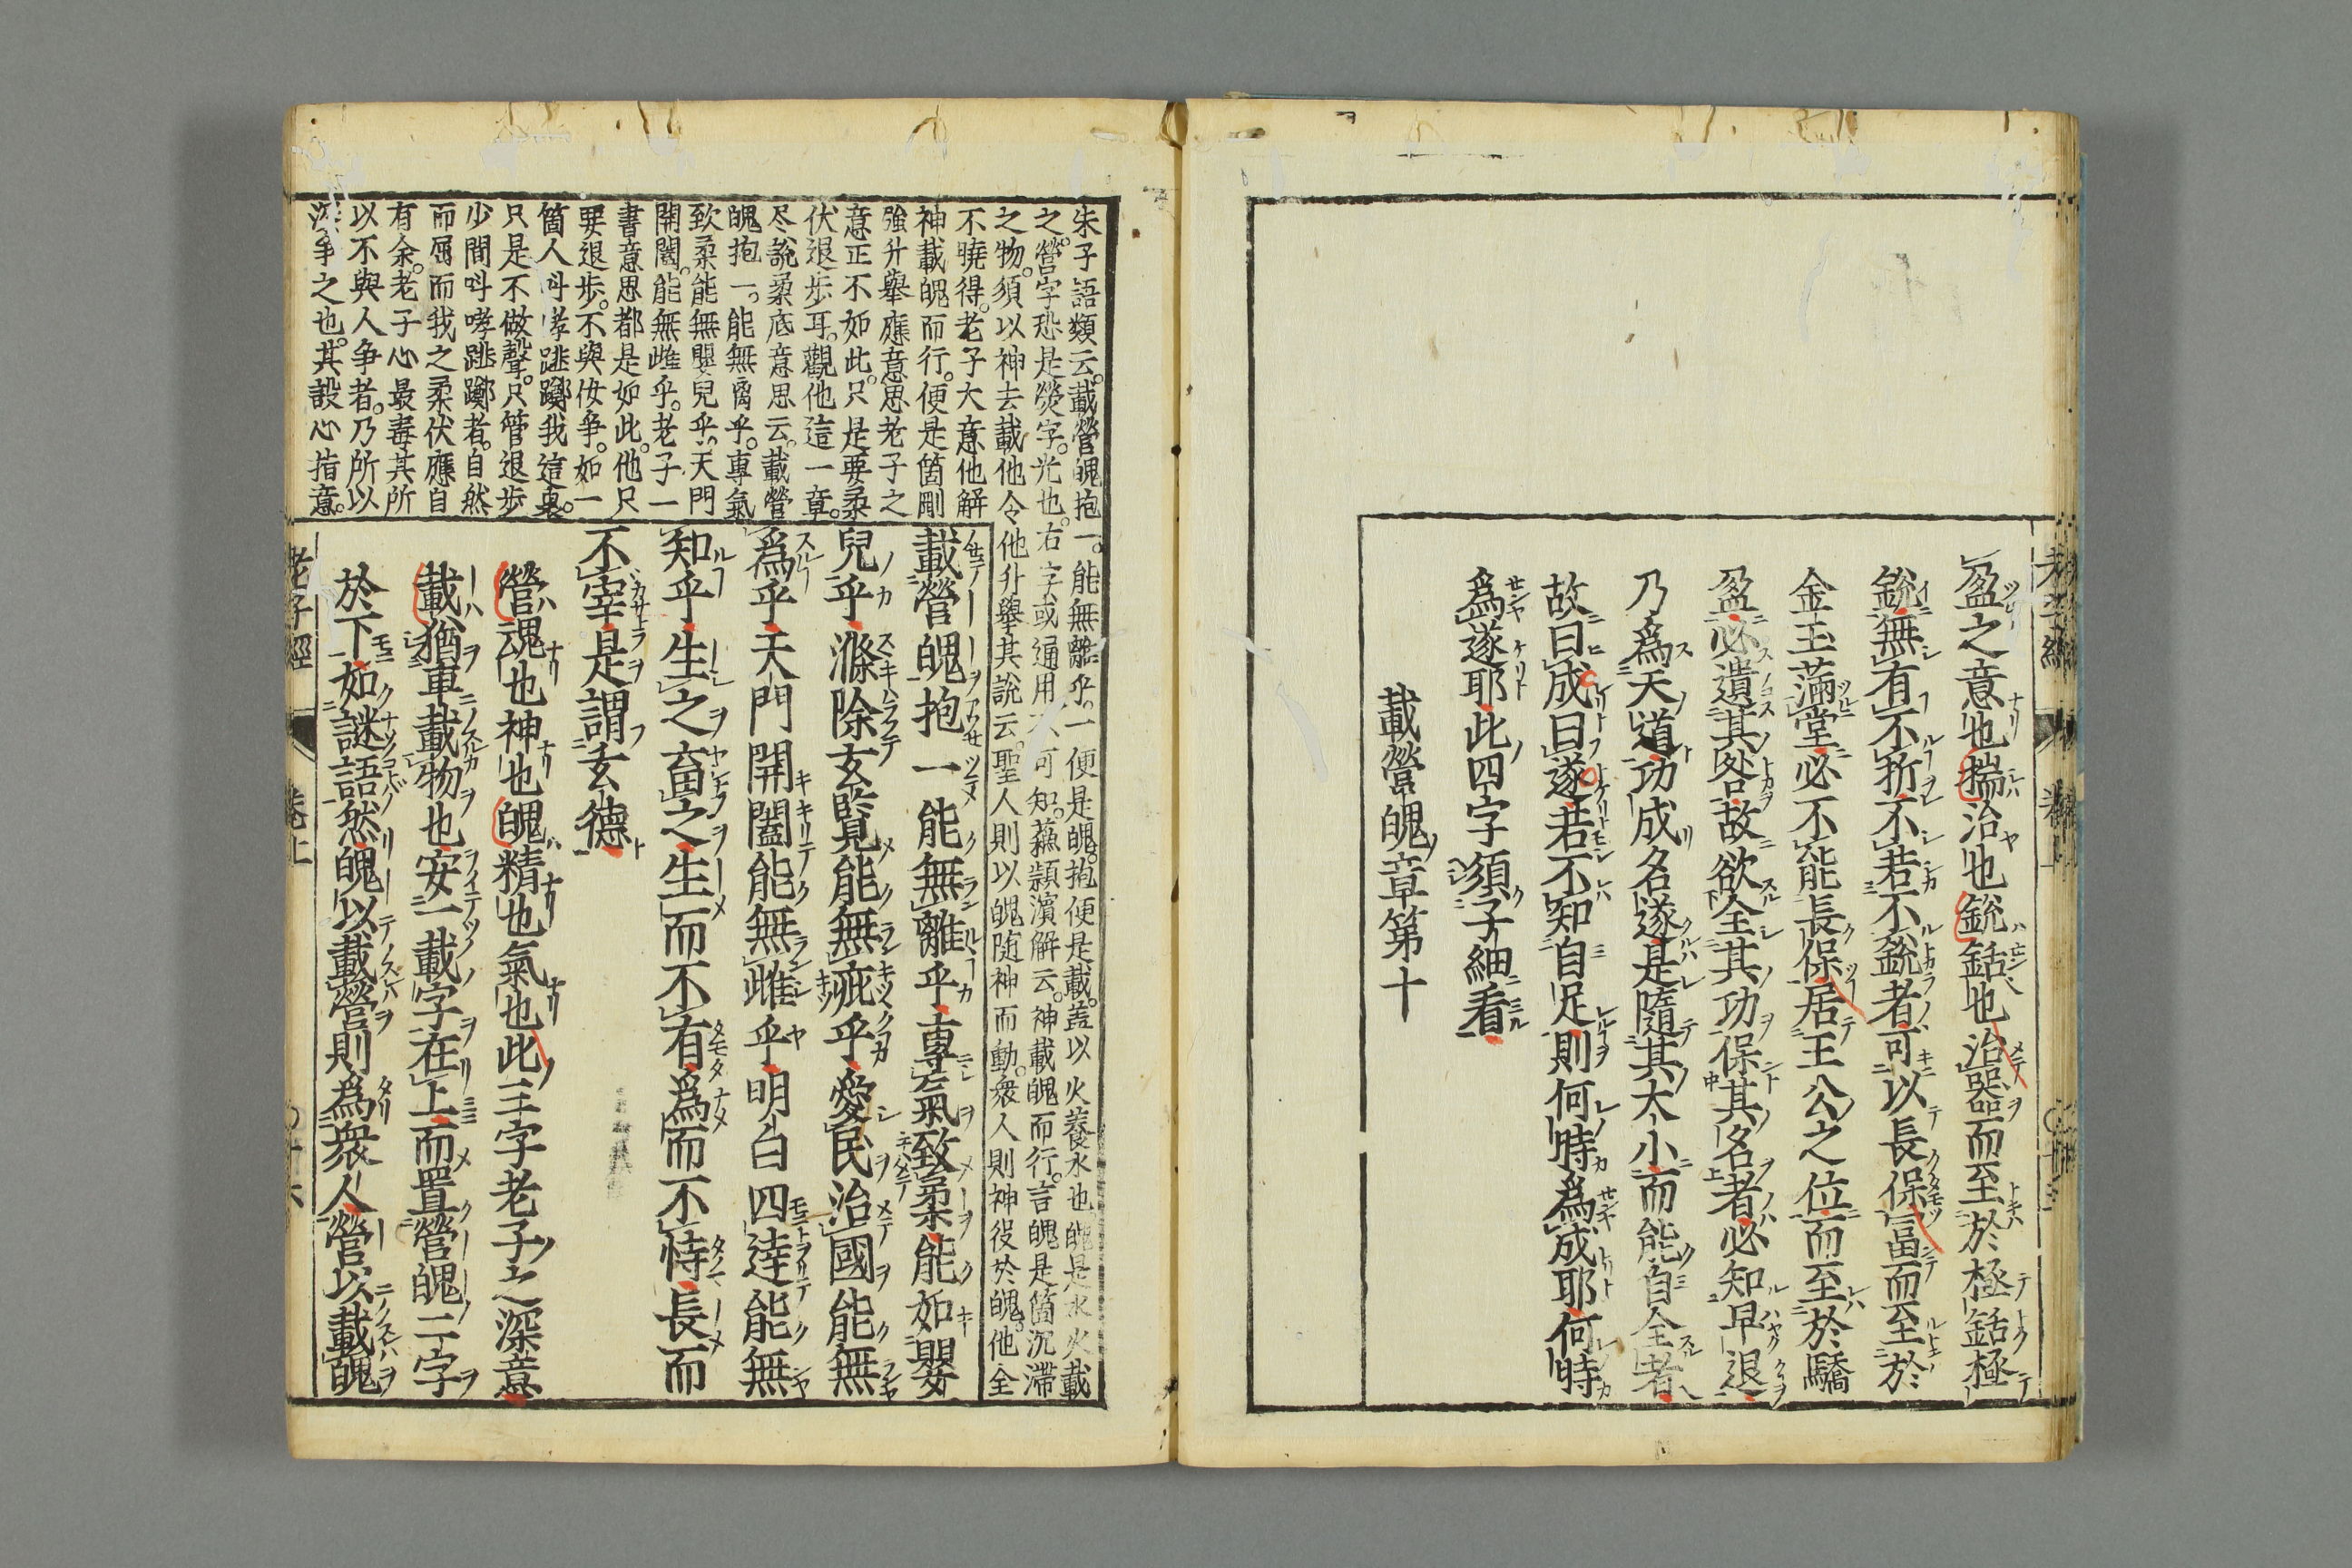 盈之意也揣治也銳銛也治器而至於極銛極
銳無有不折不若不銳者可以長保富而至於
金玉滿堂必不能長保居王公之位而至於驕
盈必遺其咎故欲全其功保其名者必知早退
乃爲天道功成名遂是隨其大小而能自全者
故曰成曰遂若不知自足則何時爲成耶何時
爲遂耶此四字須子細看
載營魄章第十
朱子語類云載營魄抱一能無離乎一便是魄抱便是載蓋以火養水也魄是水火載
之營字恐是熒字光也右字或通用不可知蘓頴濱解云神載魄而行言魄是箇沉滯
之物須以神去載他令他升舉其說云聖人則以魄随神而動衆人則神役於魄他全
不曉得老子大意他解
神載魄而行便是箇剛
強升舉應意思老子之
意正不如此只是要柔
伏退歩耳觀他這一章
尽說柔底意思云載營
魄抱一能無离乎專氣
致柔能無嬰兒乎天門
開闔能無雌乎老子一
書意思都是如此他只
要退歩不與伩争如一
箇人呌哮跳躑我這裏
只是不做聲只管退歩
少間呌哮跳躑者自然
而屈而我之柔伏應自
有余老子心最毒其所
以不與人争者乃所以
深争之也其設心措意
載營魄抱一能無離乎專氣致柔能如嬰
兒乎滌除玄覽能無疵乎愛民治國能無
爲乎天門開闔能無雌乎明白四達能無
知乎生之畜之生而不有爲而不恃長而
不宰是謂玄德
營魂也神也魄精也氣也此三字老子之深意
載猶車載物也安一載字在上而置營魄二字
於下如謎語然魄以載營則爲衆人營以載魄
老子經 卷上 〇十六